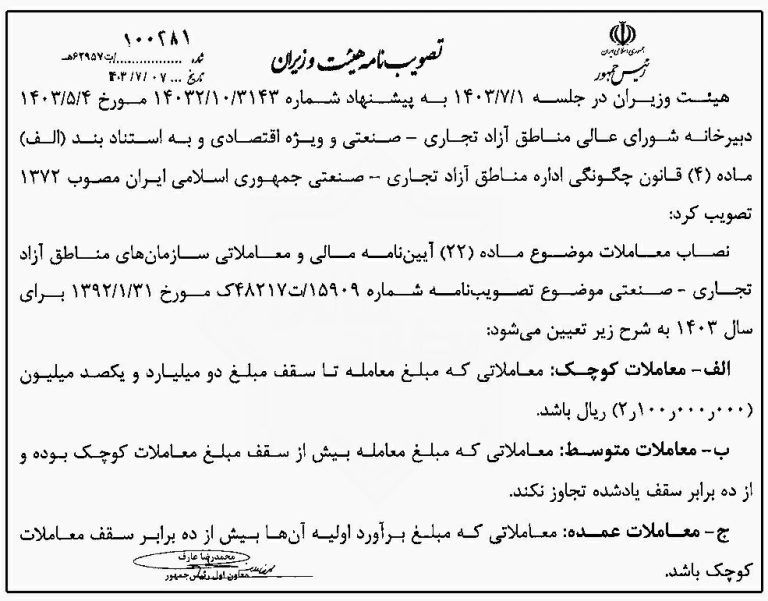 جمهوری اسلامی ایران
رئیس جمهور
تصویب نامه هیئت وزیران
۱۰۰۲۸۱
شماره ................../ت۶۲۹۵۷هـ
تاریخ ... ۱۴۰۳/۷/۰۷
هیئت وزیران در جلسه ۱۴۰۳/۷/۱ به پیشنهاد شماره ۱۴۰۳۲/۱۰/۳۱۴۳ مورخ ۱۴۰۳/۵/۴
دبیرخانه شورای عالی مناطق آزاد تجاری - صنعتی و ویژه اقتصادی و به استناد بند (الف)
ماده (۴) قانون چگونگی اداره مناطق آزاد تجاری - صنعتی جمهوری اسلامی ایران مصوب ۱۳۷۲
تصویب کرد:
نصاب معاملات موضوع ماده (۲۲) آیین‌نامه مالی و معاملاتی سازمان‌های مناطق آزاد
تجاری - صنعتی موضوع تصویب‌نامه شماره ۱۵۹۰۹/ت۴۸۲۱۷ک مورخ ۱۳۹۲/۱/۳۱ برای
سال ۱۴۰۳ به شرح زیر تعیین می‌شود:
الف- معاملات کوچک: معاملاتی که مبلغ معامله تا سقف مبلغ دو میلیارد و یکصد میلیون
(۲ر۱۰۰ر۰۰۰ر۰۰۰) ریال باشد.
ب- معاملات متوسط: معاملاتی که مبلغ معامله بیش از سقف مبلغ معاملات کوچک بوده و
از ده برابر سقف یادشده تجاوز نکند.
ج- معاملات عمده: معاملاتی که مبلغ برآورد اولیه آن‌ها بیش از ده برابر سقف معاملات
کوچک باشد.
محمدرضا عارف
معاون اول رئیس جمهور